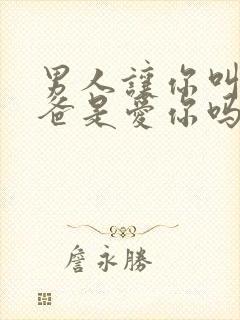 男人讓你叫
爸是愛你嗎
詹永勝